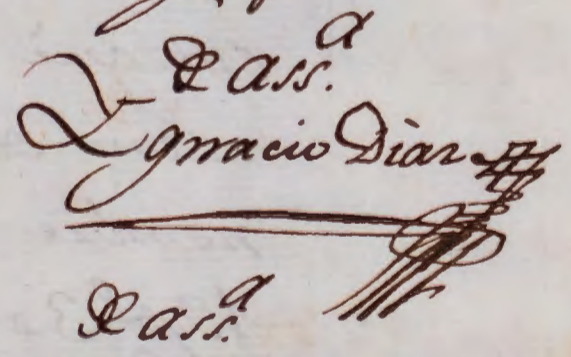 de ass.ª
Ygnacio Diaz
de ass.ª